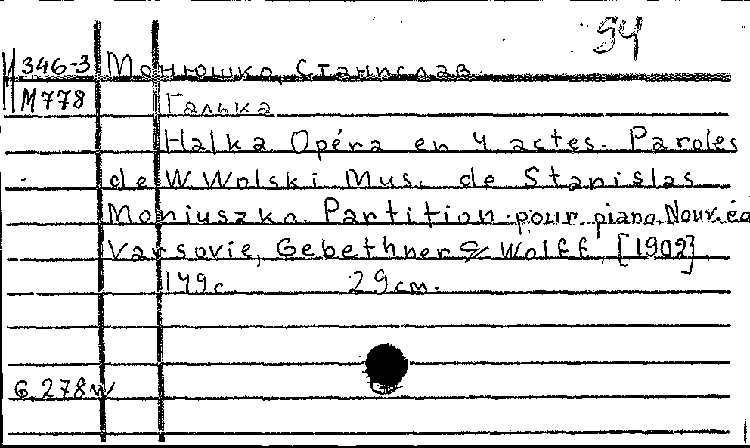 94
М346-3 Монюшко, Станислав
М778 Галька
Halka Opéra en 4 actes. Paroles
de W. Wolski Mus. de Stanislas
Moniuszko. Partition pour piano. Nouv. éd
Varsovie, Gebethner & Wolff, [1902]
149c. 29cm.
6.278